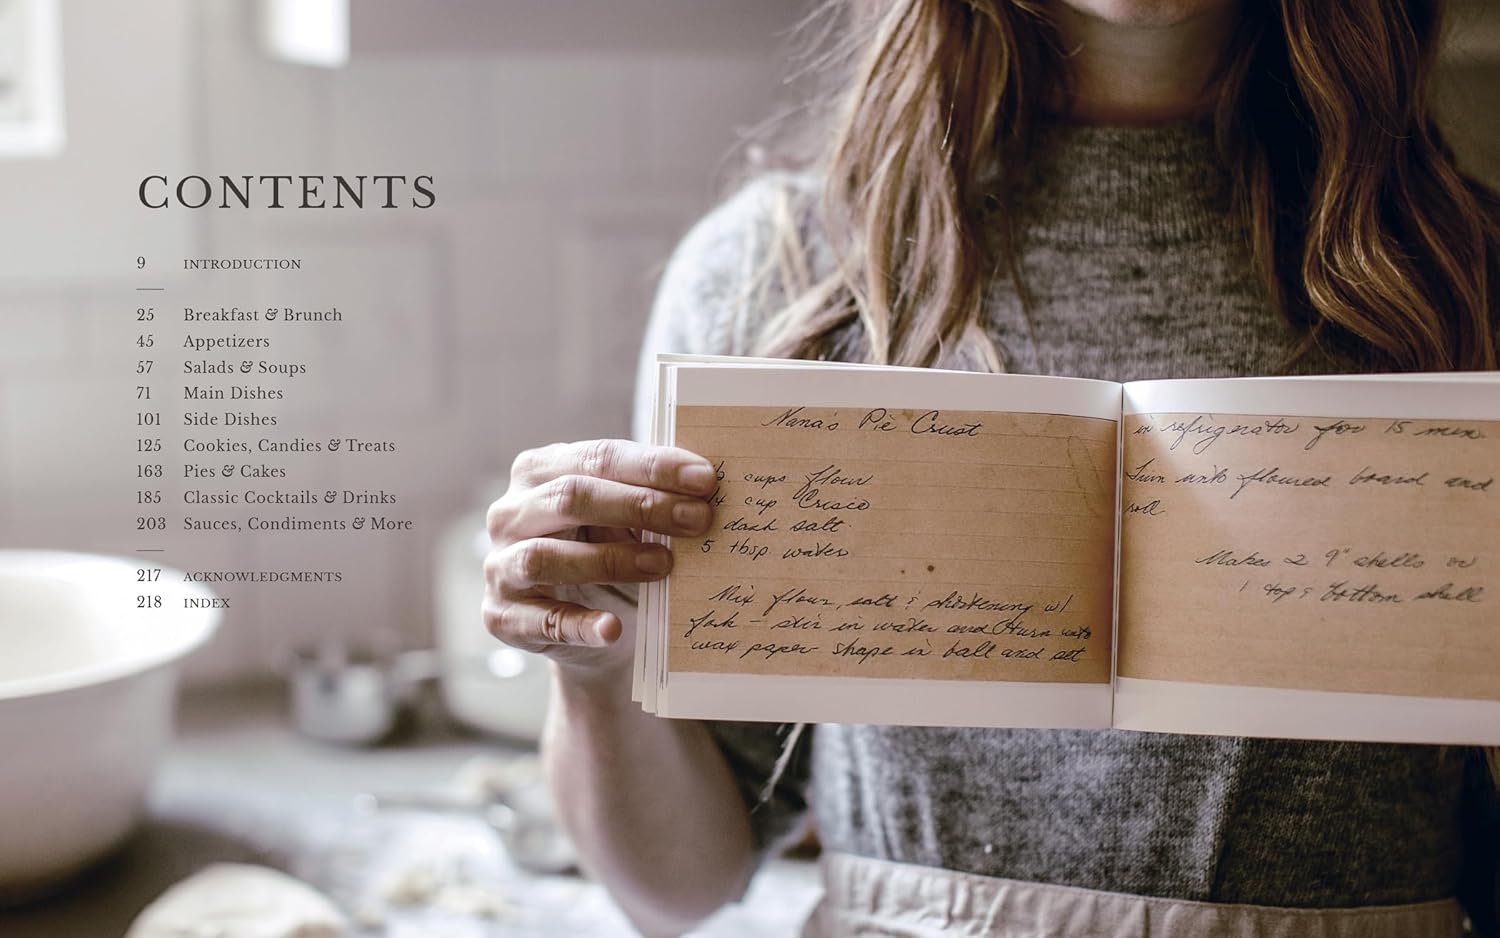 CONTENTS
9 INTRODUCTION
25 Breakfast & Brunch
45 Appetizers
57 Salads & Soups
71 Main Dishes
101 Side Dishes
125 Cookies, Candies & Treats
163 Pies & Cakes
185 Classic Cocktails & Drinks
203 Sauces, Condiments & More
217 ACKNOWLEDGMENTS
218 INDEX
Nana's Pie Crust
cups flour
cup Crisco
dash salt
5 tbsp water
Mix flour, salt & shortening w/
fork - stir in water and turn unto
wax paper shape in ball and set
in refrigerator for 15 min
Turn unto floured board and
roll
Makes 2 9" shells or
1 top & bottom shell